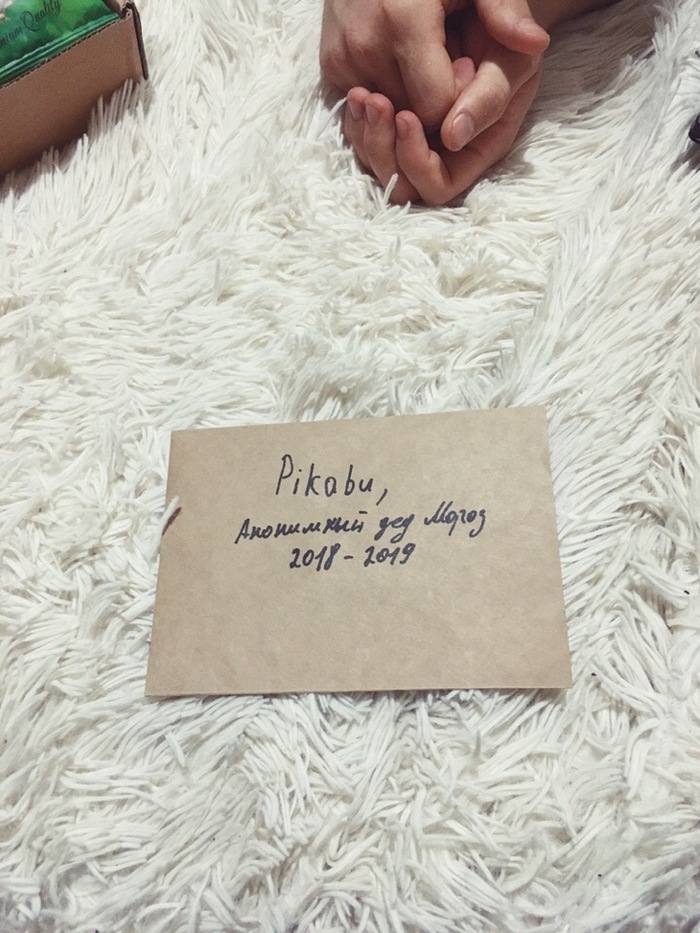 Quality
Pikabu,
Анонимный дед Мороз
2018 - 2019